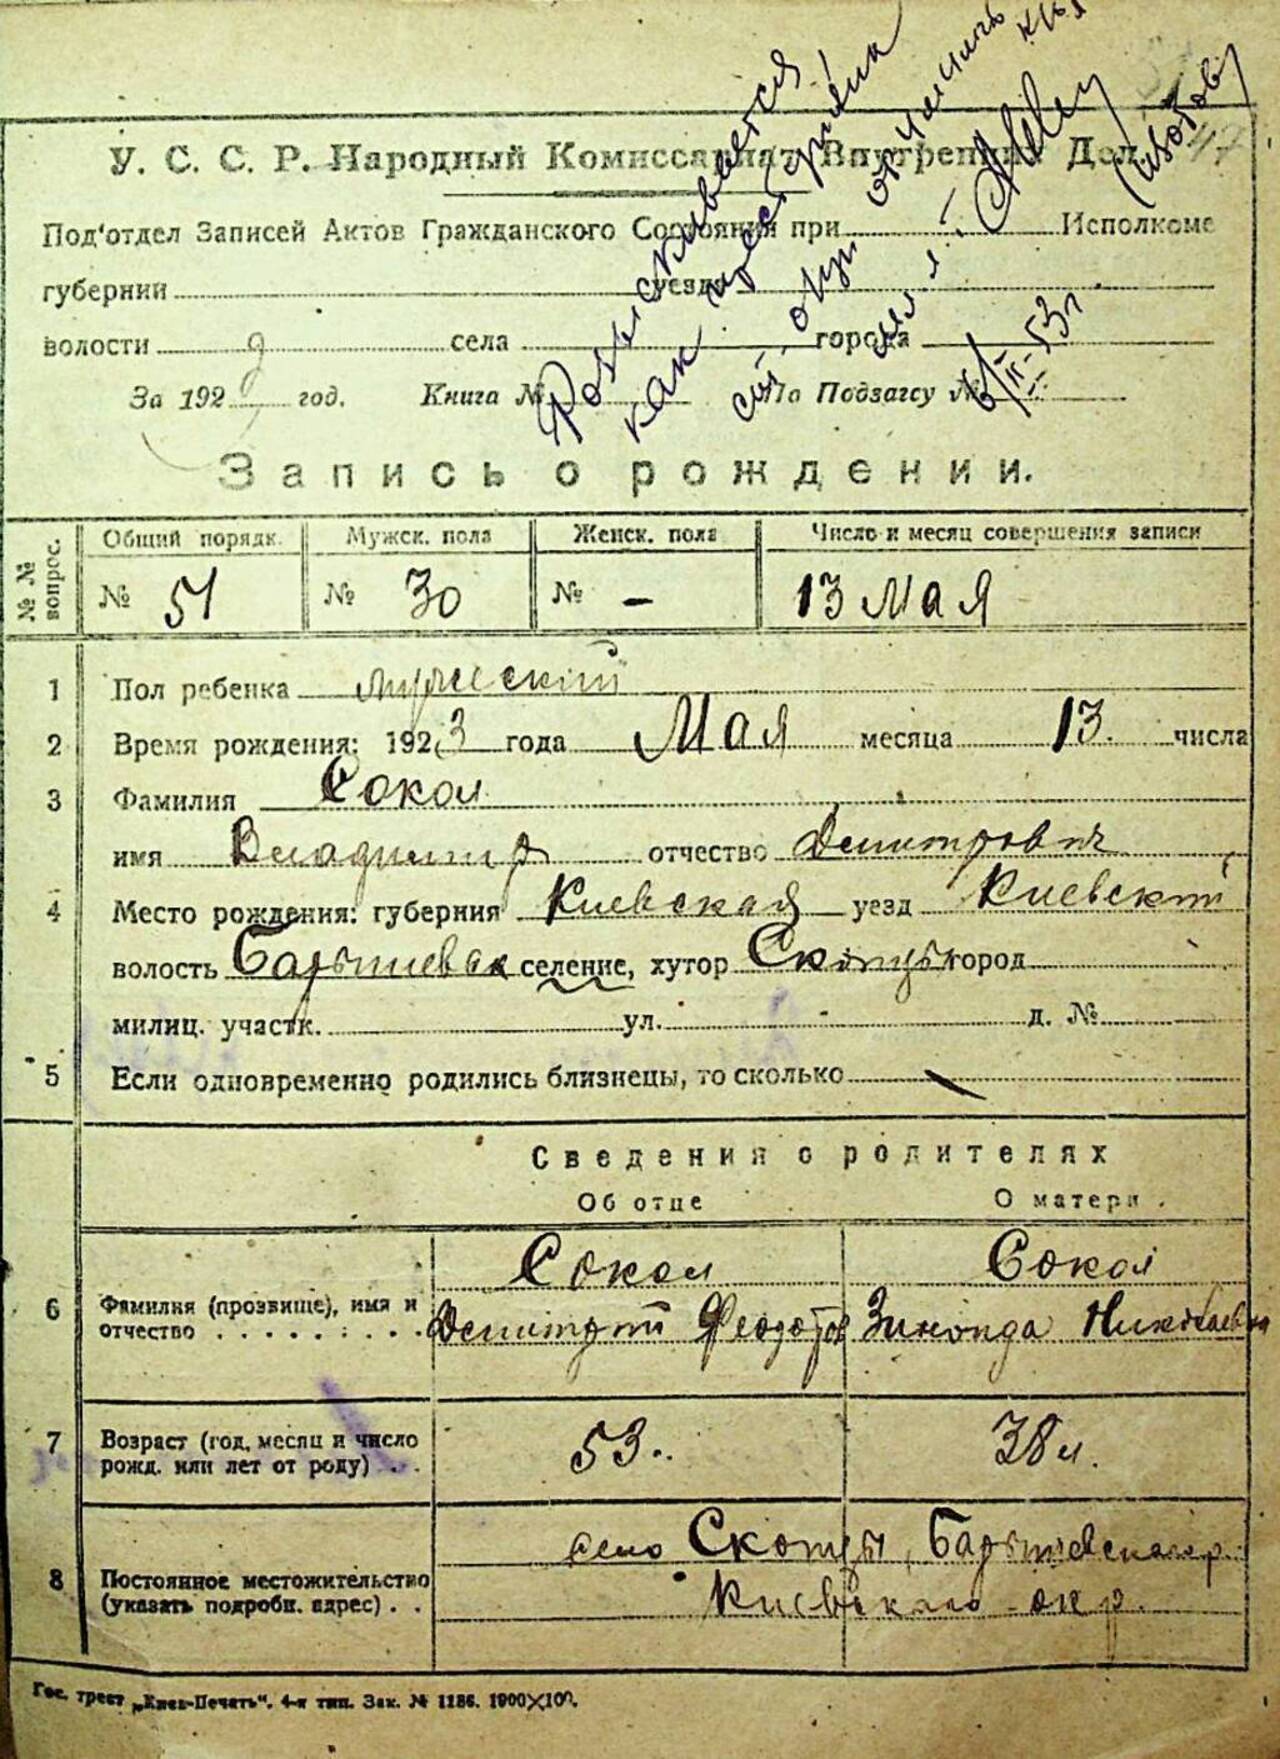 У. С. С. Р. Народный Комиссариат Внутренних Дел
Под'отдел Записей Актов Гражданского Состояния при Исполкоме
губернии уезда
волости села города
За 192 год. Книга № По Подзагсу №
Разыскивается
как
6/II-53г
Запись о рождении.
№ № вопрос. Общий порядк. Мужск. пола Женск. пола Число и месяц совершения записи
№ 51 № 30 № - 13 Мая
1 Пол ребенка мужский
2 Время рождения: 1923 года Мая месяца 13. числа
3 Фамилия Сокол
имя Владимир отчество Демитрович
4 Место рождения: губерния Киевская уезд Киевский
волость селение, хутор Скопцы город
милиц. участк. ул. д. №
5 Если одновременно родились близнецы, то сколько
Сведения о родителях
Об отце О матери
Сокол Сокол
6 Фамилия (прозвище), имя и отчество Демитрий Феодотов Николаевна
7 Возраст (год, месяц и число рожд. или лет от роду) 53. 38 л.
8 Постоянное местожительство (указать подробн. адрес) село Скопцы,
Киевского окр.
Гос. трест „Киев-Печать". 4-я тип. Зак. № 1186. 1900×100.